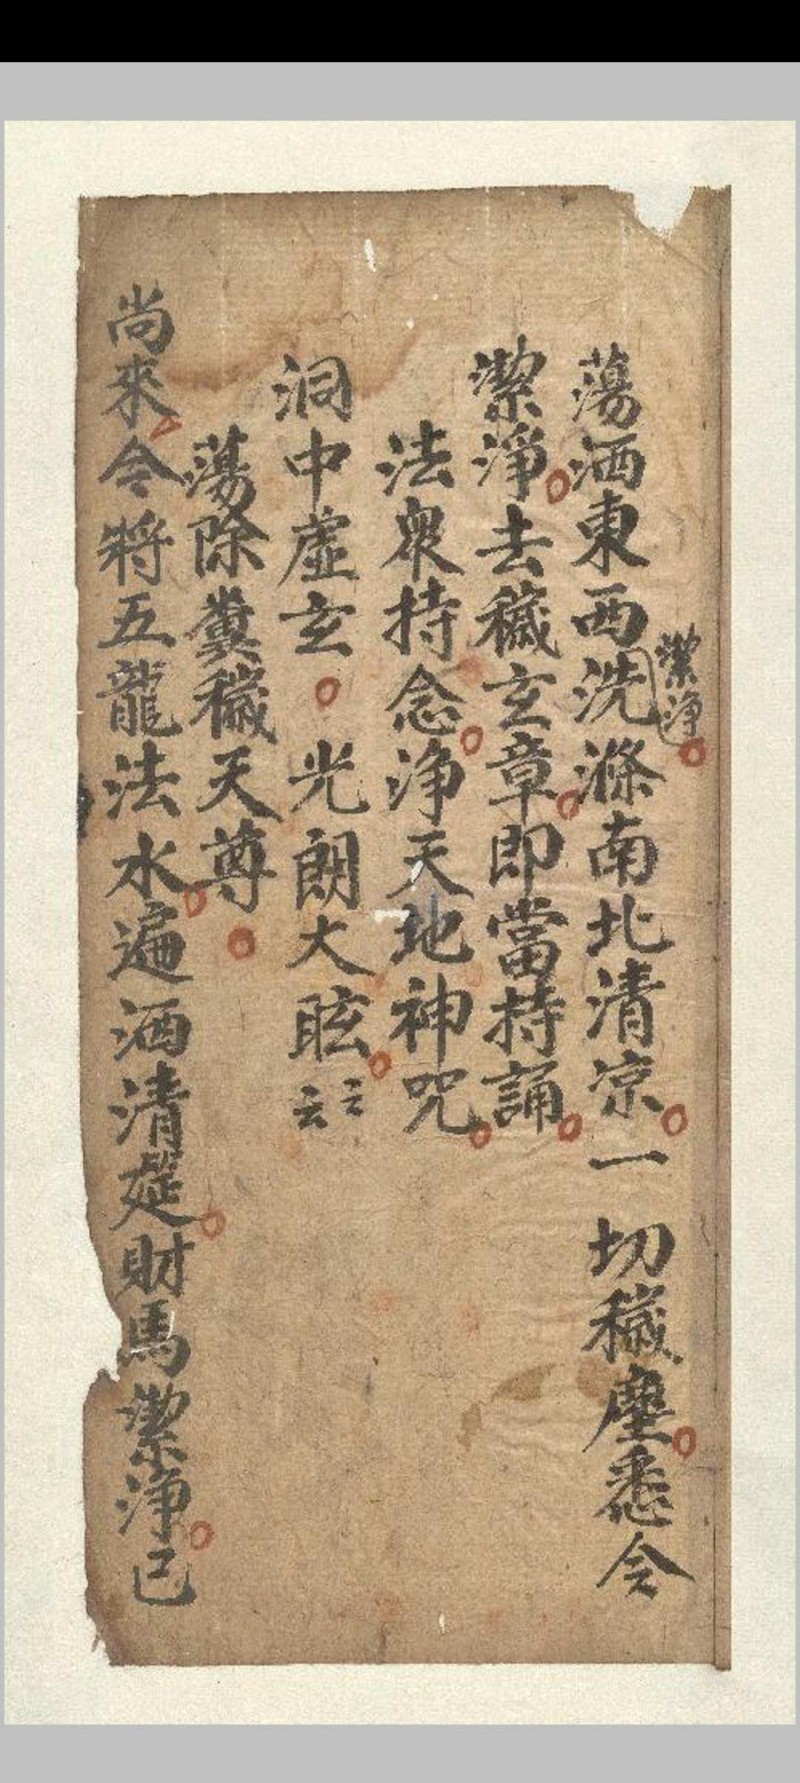 蕩洒東西洗滌南北清凉一切穢塵悉令
潔淨
潔淨去穢玄章即當持誦
法衆持念淨天地神咒
洞中虛玄光朗大眩云云
蕩除糞穢天尊
尚來令將五龍法水遍洒清筵財馬潔淨已